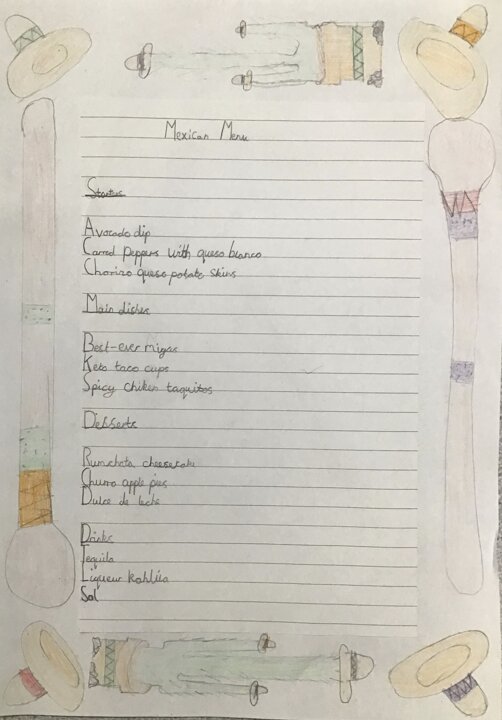 Mexican Menu
Starters
Avocado dip
Carred Peppers with queso blanco
Chorizo queso potato skins
Main dishes
Best-ever migas
Keto taco cups
Spicy chiken taquitos
Desserts
Rumchata cheesecake
Churro apple pies
Dulce de leche
Drinks
Tequila
Liqueur kahlúa
Sol